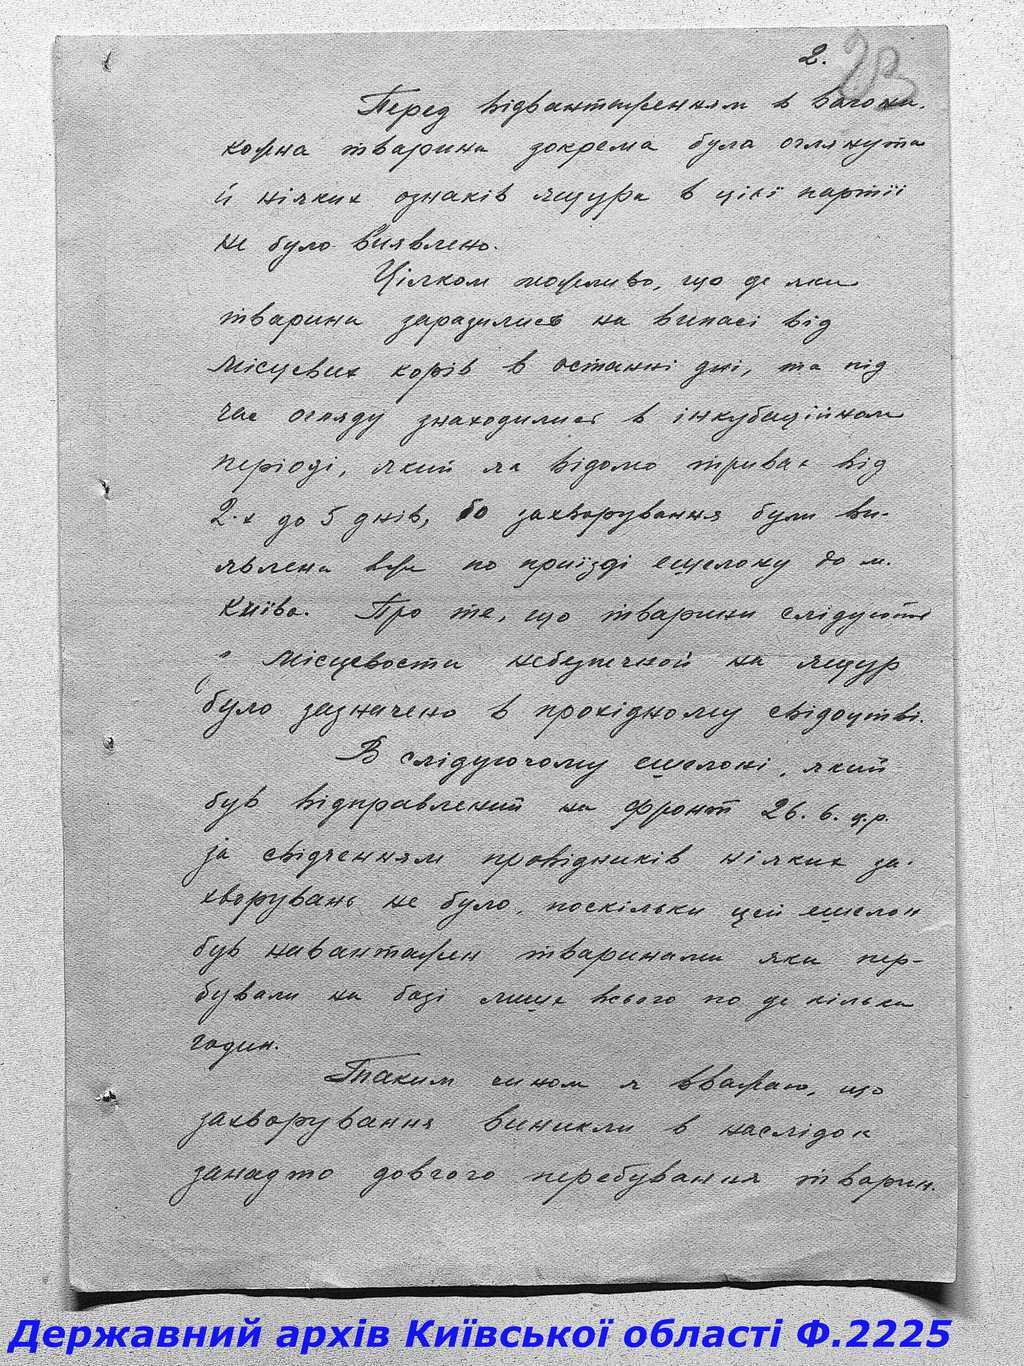 2.
23
Перед відвантаженням в вагони.
кожна тварина зокрема була оглянута
й ніяких ознаків ящура в ції партії
не було виявлено.
Цілком можливо, що де яки
тварини заразились на випасі від
місцевих корів в останні дні, та під
час огляду знаходились в інкубаційном
періоді, який як відомо триває від
2-х до 5 днів, бо захворування були ви-
явлени вже по приїзді ешелону до м.
Київа. Про те, що тварини слідують
з місцевости небезпечной на ящур
було зазначено в прохідному свідоцтві.
В слідуючому ешелоні, який
був відправлений на фронт 26.6. ц.р.
за свідченням провідників ніяких за-
хворувань не було, поскільки цей ешелон
був навантажен тваринами яки пер-
бували на базі лише всього по де кілька
годин.
Таким чином я вважаю, що
захворування виникли в наслідок
занадто довгого перебування тварин.
Державний архів Київської області Ф.2225